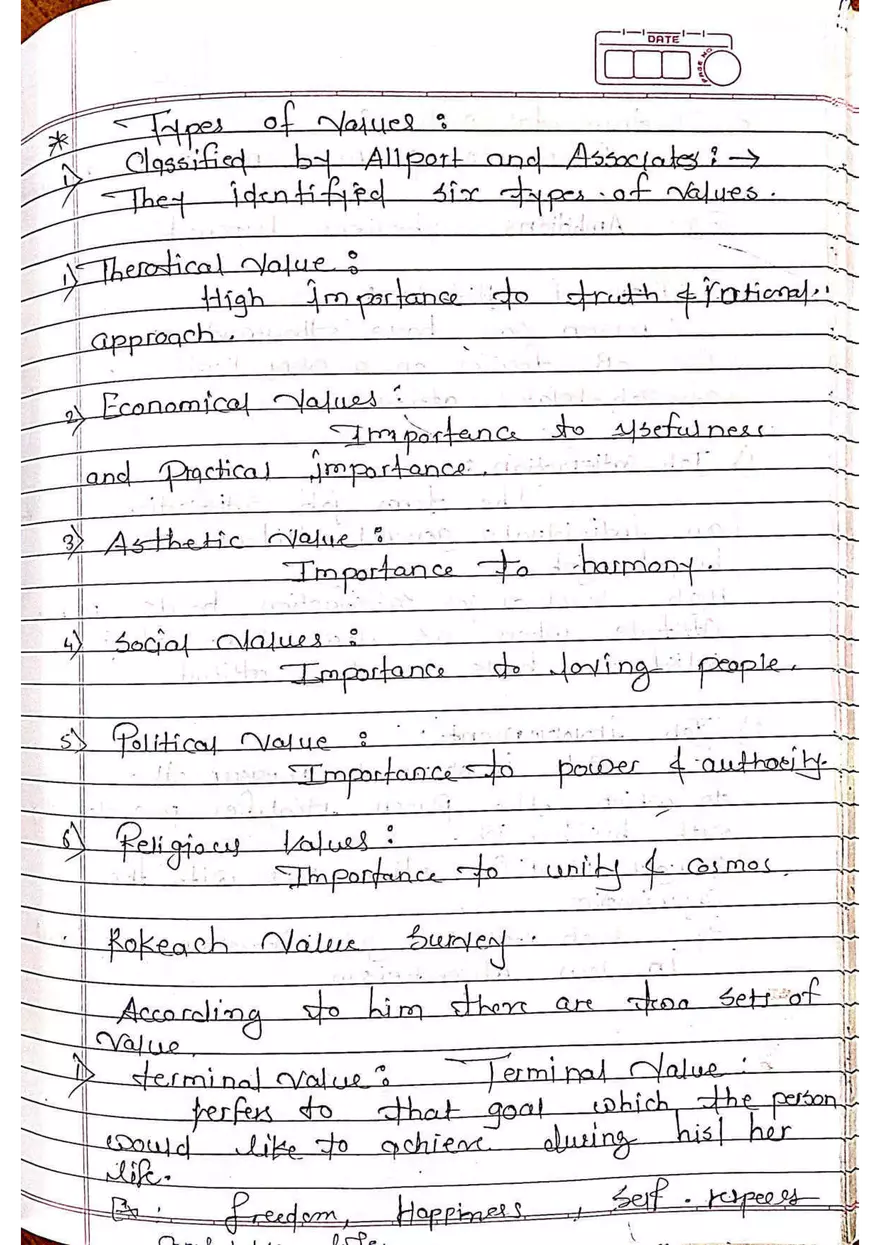 DATE
PAGE NO
* Types of Values :
1) Classified by Allport and Associates : →
They identified six types of values.
1) Therotical Value :
High importance to truth & rational
approach.
2) Economical Values :
Importance to usefulness
and Practical importance.
3) Asthetic Value :
Importance to harmony.
4) Social Values :
Importance to loving people.
5) Political Value :
Importance to power & authority.
6) Religious Values :
Importance to unity & cosmos.
Rokeach Value Survey.
According to him there are two sets of
Value.
1) terminal value : Terminal Value :
perfers to that goal which the person
would like to achieve during his/ her
life.
Ex. freedom, Happiness, Self-respect
life.